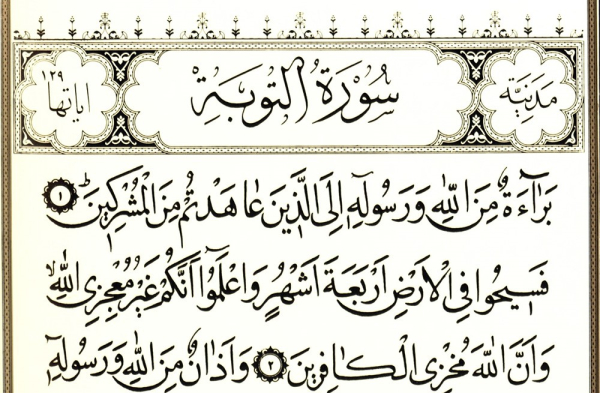 مَدَنِيَّة
سُورَةُ التَّوبَةِ
اياتها ١٢٩
بَرَآءَةٌ مِنَ اللّٰهِ وَرَسُولِهِٓ اِلَى الَّذِينَ عَاهَدْتُمْ مِنَ الْمُشْرِكِينَۜ ١
فَسِيحُوا فِي الْاَرْضِ اَرْبَعَةَ اَشْهُرٍ وَاعْلَمُٓوا اَنَّكُمْ غَيْرُ مُعْجِزِي اللّٰهِۙ
وَاَنَّ اللّٰهَ مُخْزِي الْكَافِرِينَ ٢ وَاَذَانٌ مِنَ اللّٰهِ وَرَسُولِهِٓ